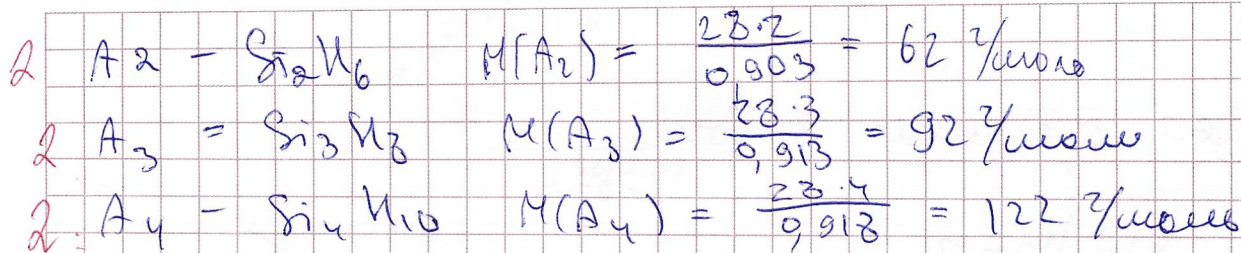 2 A2 - Si₂H₆ M(A₂) = 28·2/0,903 = 62 г/моль
2 A₃ = Si₃H₈ M(A₃) = 28·3/0,913 = 92 г/моль
2. A₄ - Si₄H₁₀ M(A₄) = 28·4/0,918 = 122 г/моль